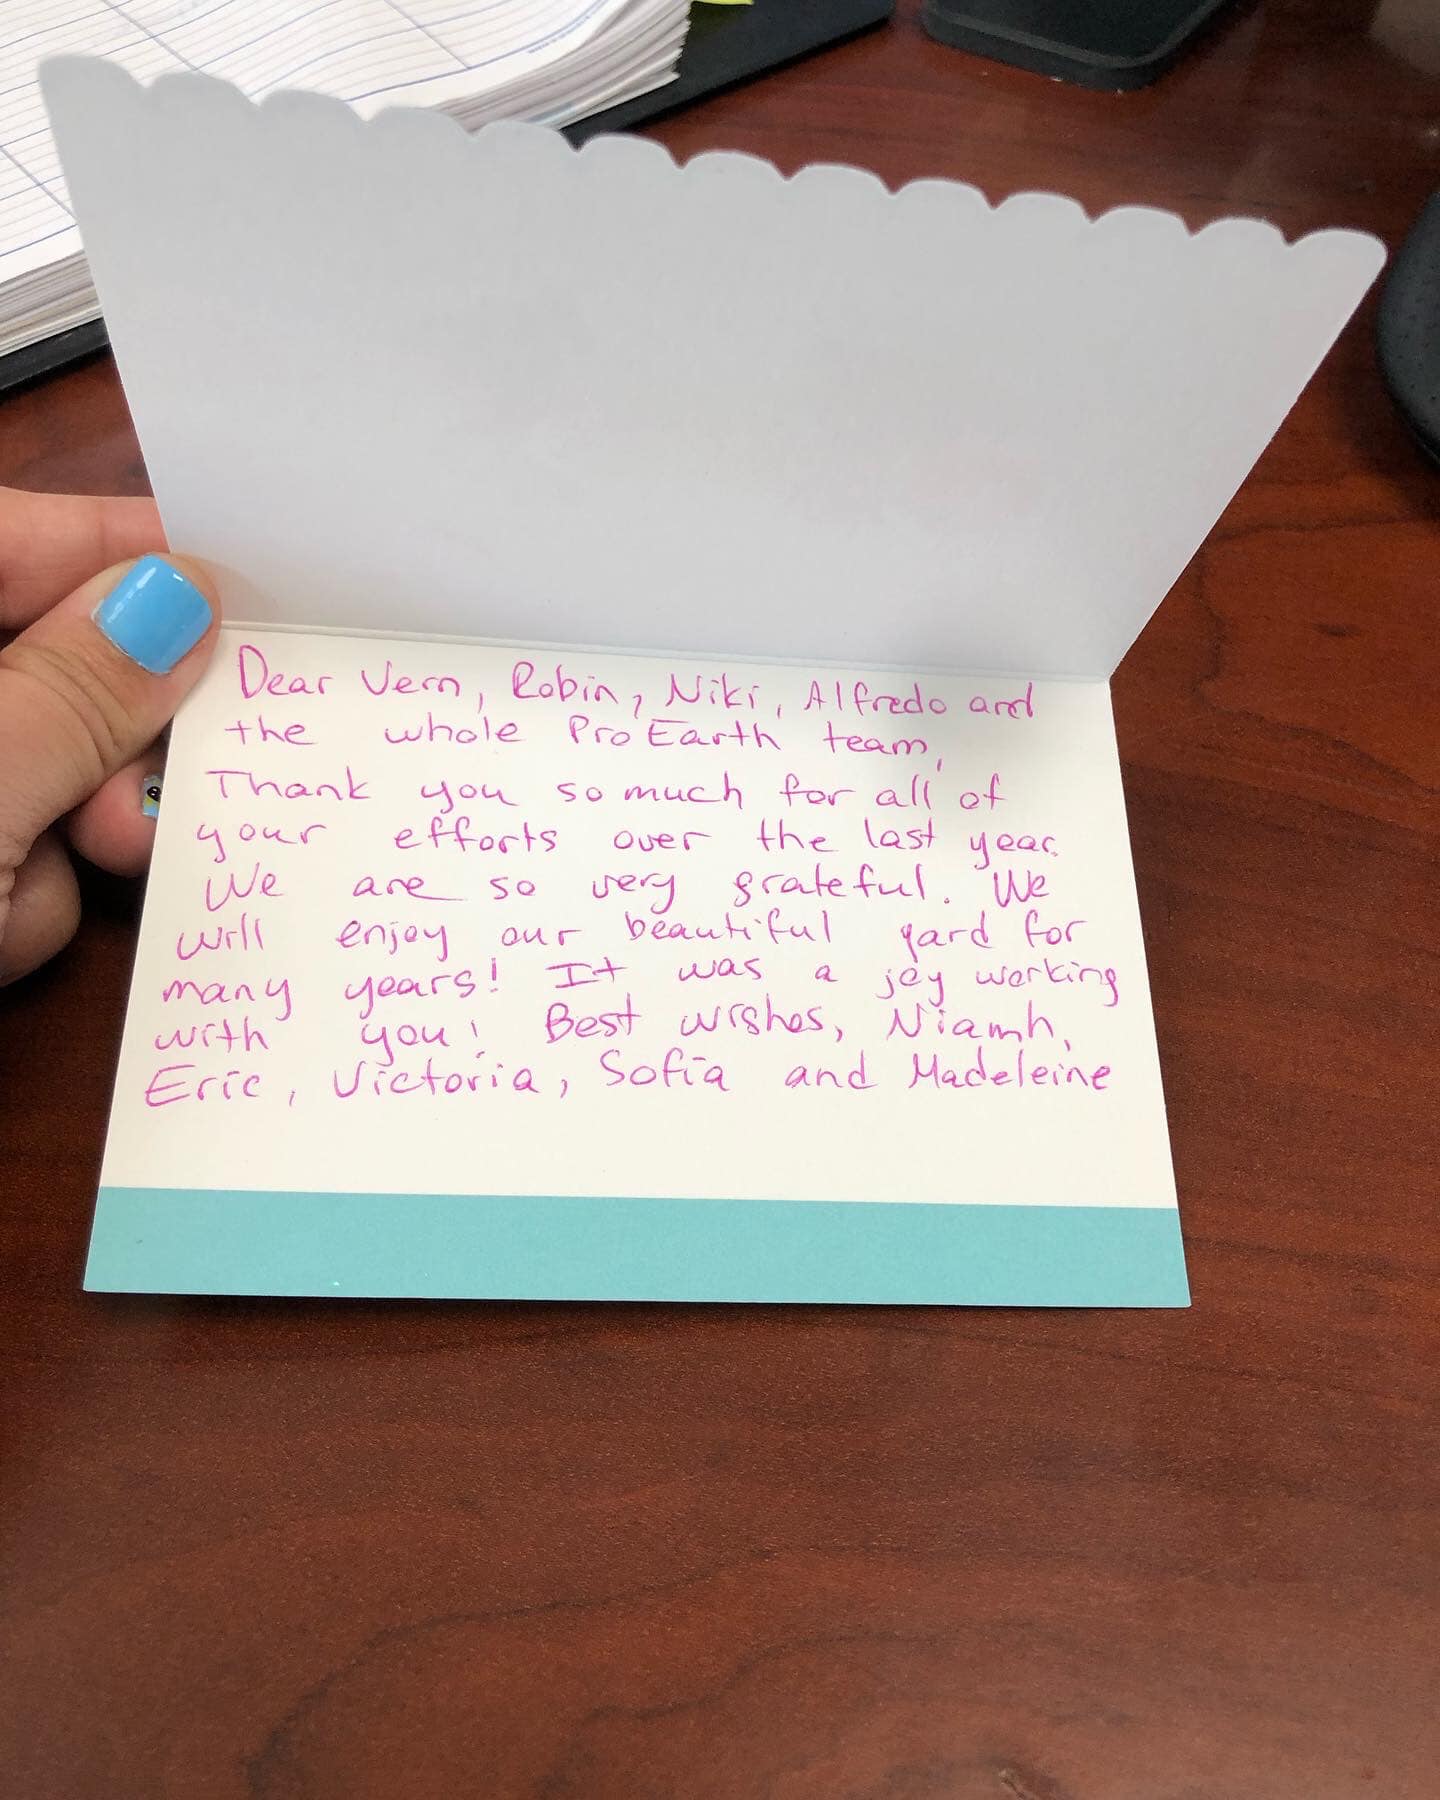 Dear Vern, Robin, Niki, Alfredo and
the whole ProEarth team,
Thank you so much for all of
your efforts over the last year.
We are so very grateful. We
will enjoy our beautiful yard for
many years! It was a joy working
with you! Best wishes, Niamh,
Eric, Victoria, Sofia and Madeleine